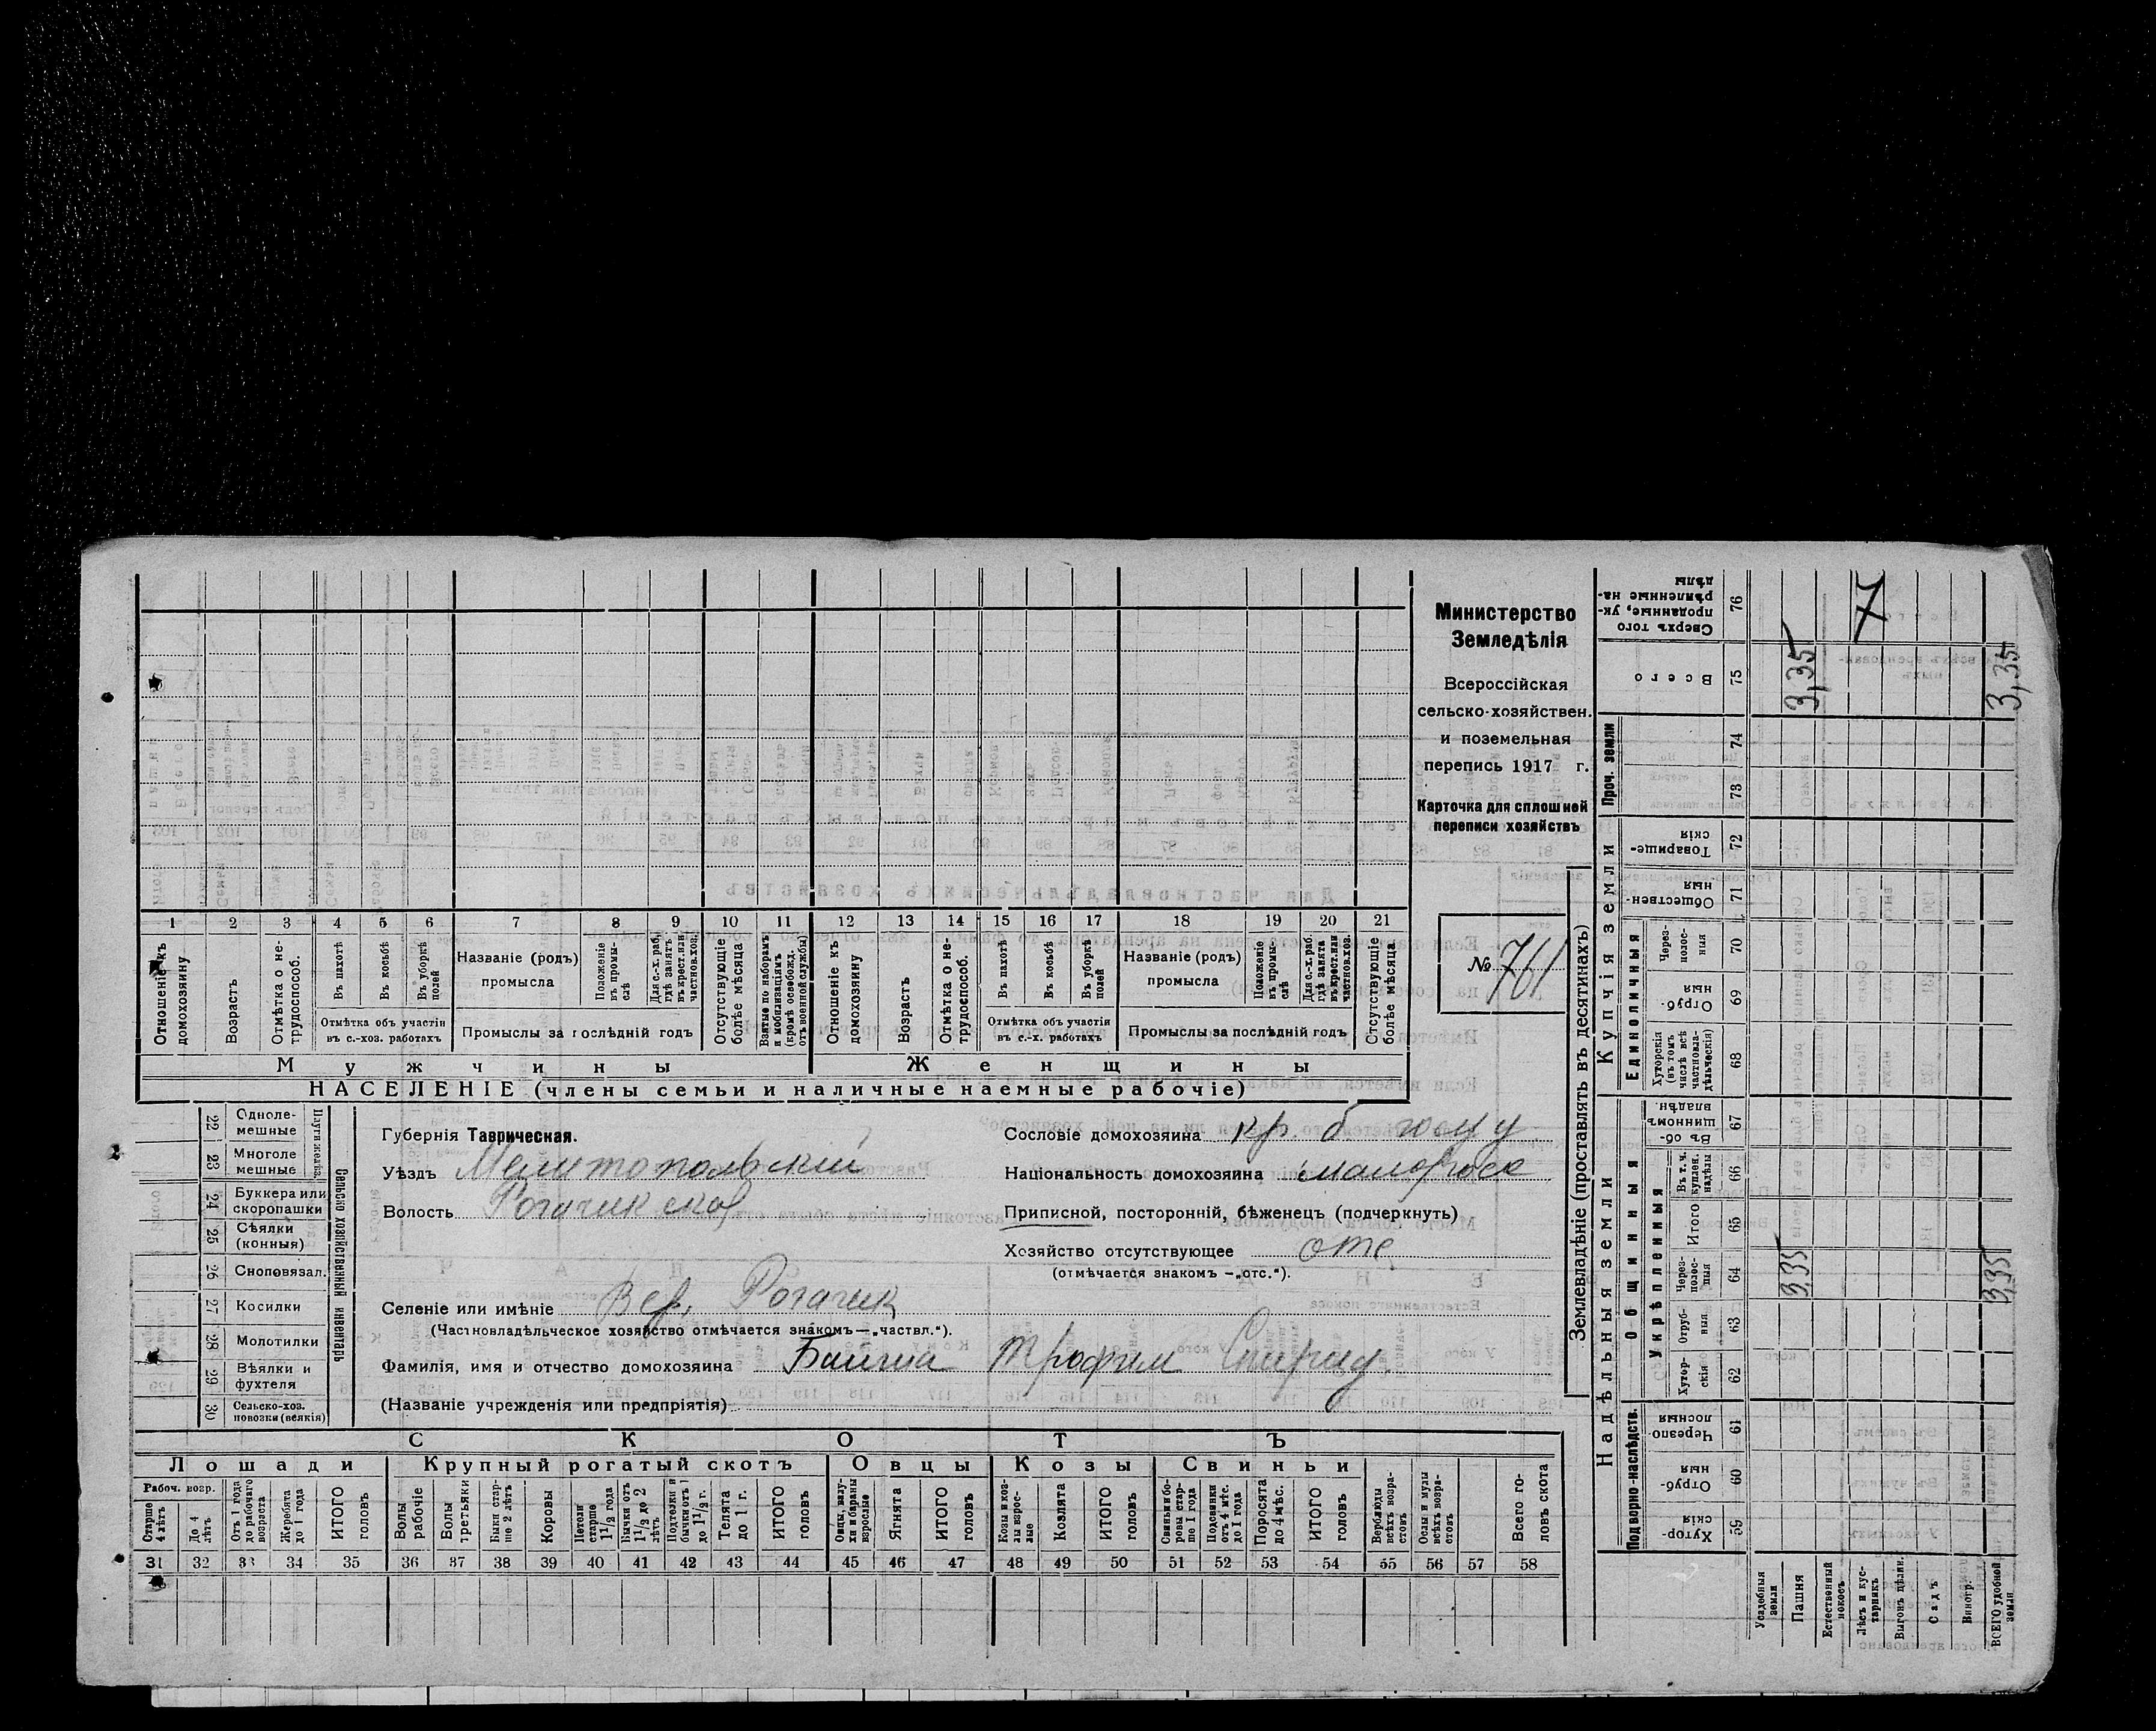 Министерство
Земледѣлія
Всероссійская
сельско-хозяйствен.
и поземельная
перепись 1917 г.
Карточка для сплошней
переписи хозяйствъ
№ 761
1 2 3 4 5 6 7 8 9 10 11 12 13 14 15 16 17 18 19 20 21
Отношеніе къ домохозяину
Возрастъ
Отмѣтка о не-трудоспособ.
Въ пахотѣ
Въ косьбѣ
Въ уборкѣ полей
Отмѣтка объ участіи
въ с.-хоз. работахъ
Названіе (родъ)
промысла
Положеніе въ промы-слѣ
Для с.-х. раб. гдѣ занятъ въ крест. или частнов. хоз.
Промыслы за послѣдній годъ
Отсутствующіе болѣе мѣсяца
Взятые по наборамъ и мобилизаціямъ (кромѣ освобожд. отъ военной службы)
Отношеніе къ домохозяину
Возрастъ
Отмѣтка о не-трудоспособ.
Въ пахотѣ
Въ косьбѣ
Въ уборкѣ полей
Отмѣтка объ участіи
въ с.-х. работахъ
Названіе (родъ)
промысла
Положеніе въ промы-слѣ
Для с.-х. раб. гдѣ занята въ крест. или частнов. хоз.
Промыслы за послѣдній годъ
Отсутствующіе болѣе мѣсяца
Мужчины Женщины
НАСЕЛЕНІЕ (члены семьи и наличные наемные рабочіе)
22 Одноле-мешные
23 Многоле мешные
24 Буккера или скоропашки
25 Сѣялки (конныя)
26 Сноповязал.
27 Косилки
28 Молотилки
29 Вѣялки и фухтеля
30 Сельско-хоз. повозки (всякія)
Сельско хозяйственный инвентарь
Губернія Таврическая.
Уѣздъ Мелитопольскій
Волость Рогачикской
Селеніе или имѣніе Вер. Рогачик
(Частновладѣльческое хозяйство отмѣчается знакомъ—„частвл.“).
Фамилія, имя и отчество домохозяина Трофим Спирид.
(Названіе учрежденія или предпріятія)
Сословіе домохозяина кр. б
Національность домохозяина малоросс
Приписной, посторонній, бѣженецъ (подчеркнуть)
Хозяйство отсутствующее отс
(отмѣчается знакомъ —„отс.“).
СКОТЪ
Лошади Крупный рогатый скотъ Овцы Козы Свиньи
Рабоч. возр.
Старше 4 лѣтъ
До 4 лѣтъ
Отъ 1 года до рабочаго возраста
Жеребята до 1 года
ИТОГО головъ
Волы рабочіе
Волы третьяки
Быки стар-ше 2 лѣтъ
Коровы
Нетели старше 1 1/2 года
Бычки отъ 1 1/2 до 2 лѣтъ
Подтелки и бычки отъ 1 до 1 1/2 г.
Телята до 1 г.
ИТОГО головъ
Овцы, валу-хи и бараны взрослые
Ягнята
ИТОГО головъ
Козы и коз-лы взрос-лые
Козлята
ИТОГО головъ
Свиньи и бо-ровы стар-ше 1 года
Подсвинки отъ 4 мѣс. до 1 года
Поросята до 4 мѣс.
ИТОГО головъ
Верблюды всѣхъ возра-стовъ
Ослы и мулы всѣхъ возра-стовъ
Всего го-ловъ скота
31 32 33 34 35 36 37 38 39 40 41 42 43 44 45 46 47 48 49 50 51 52 53 54 55 56 57 58
Землевладѣніе (проставлять въ десятинахъ)
Надѣльныя земли
Купчія земли
Проч. земли
Подворно-наслѣдств.
Общинныя
Укрѣпленныя
Единоличныя
Хутор-скія 59
Отруб-ныя 60
Черезпо лосныя 61
Хутор-скія 62
Отруб-ныя 63
Через-полос-ныя 64
Итого 65
Въ т. ч. куплен. надѣлы 66
Въ об-щинномъ владѣн. 67
Хуторскія (въ томъ числѣ всѣ частновла-дѣльческія) 68
Отруб-ныя 69
Через-полос-ныя 70
Обществен-ныя 71
Товарище-скія 72
73
74
Всего 75
Сверхъ того проданные, ук-рѣпленные на-дѣлы 76
Усадебныя земли
Пашня 3,35 3,35
Естественный покосъ
Лѣсъ и кус-тарникъ 7
Выгонъ цѣлин.
Садъ
Виногр.
ВСЕГО удобной земли 3,35 3,35